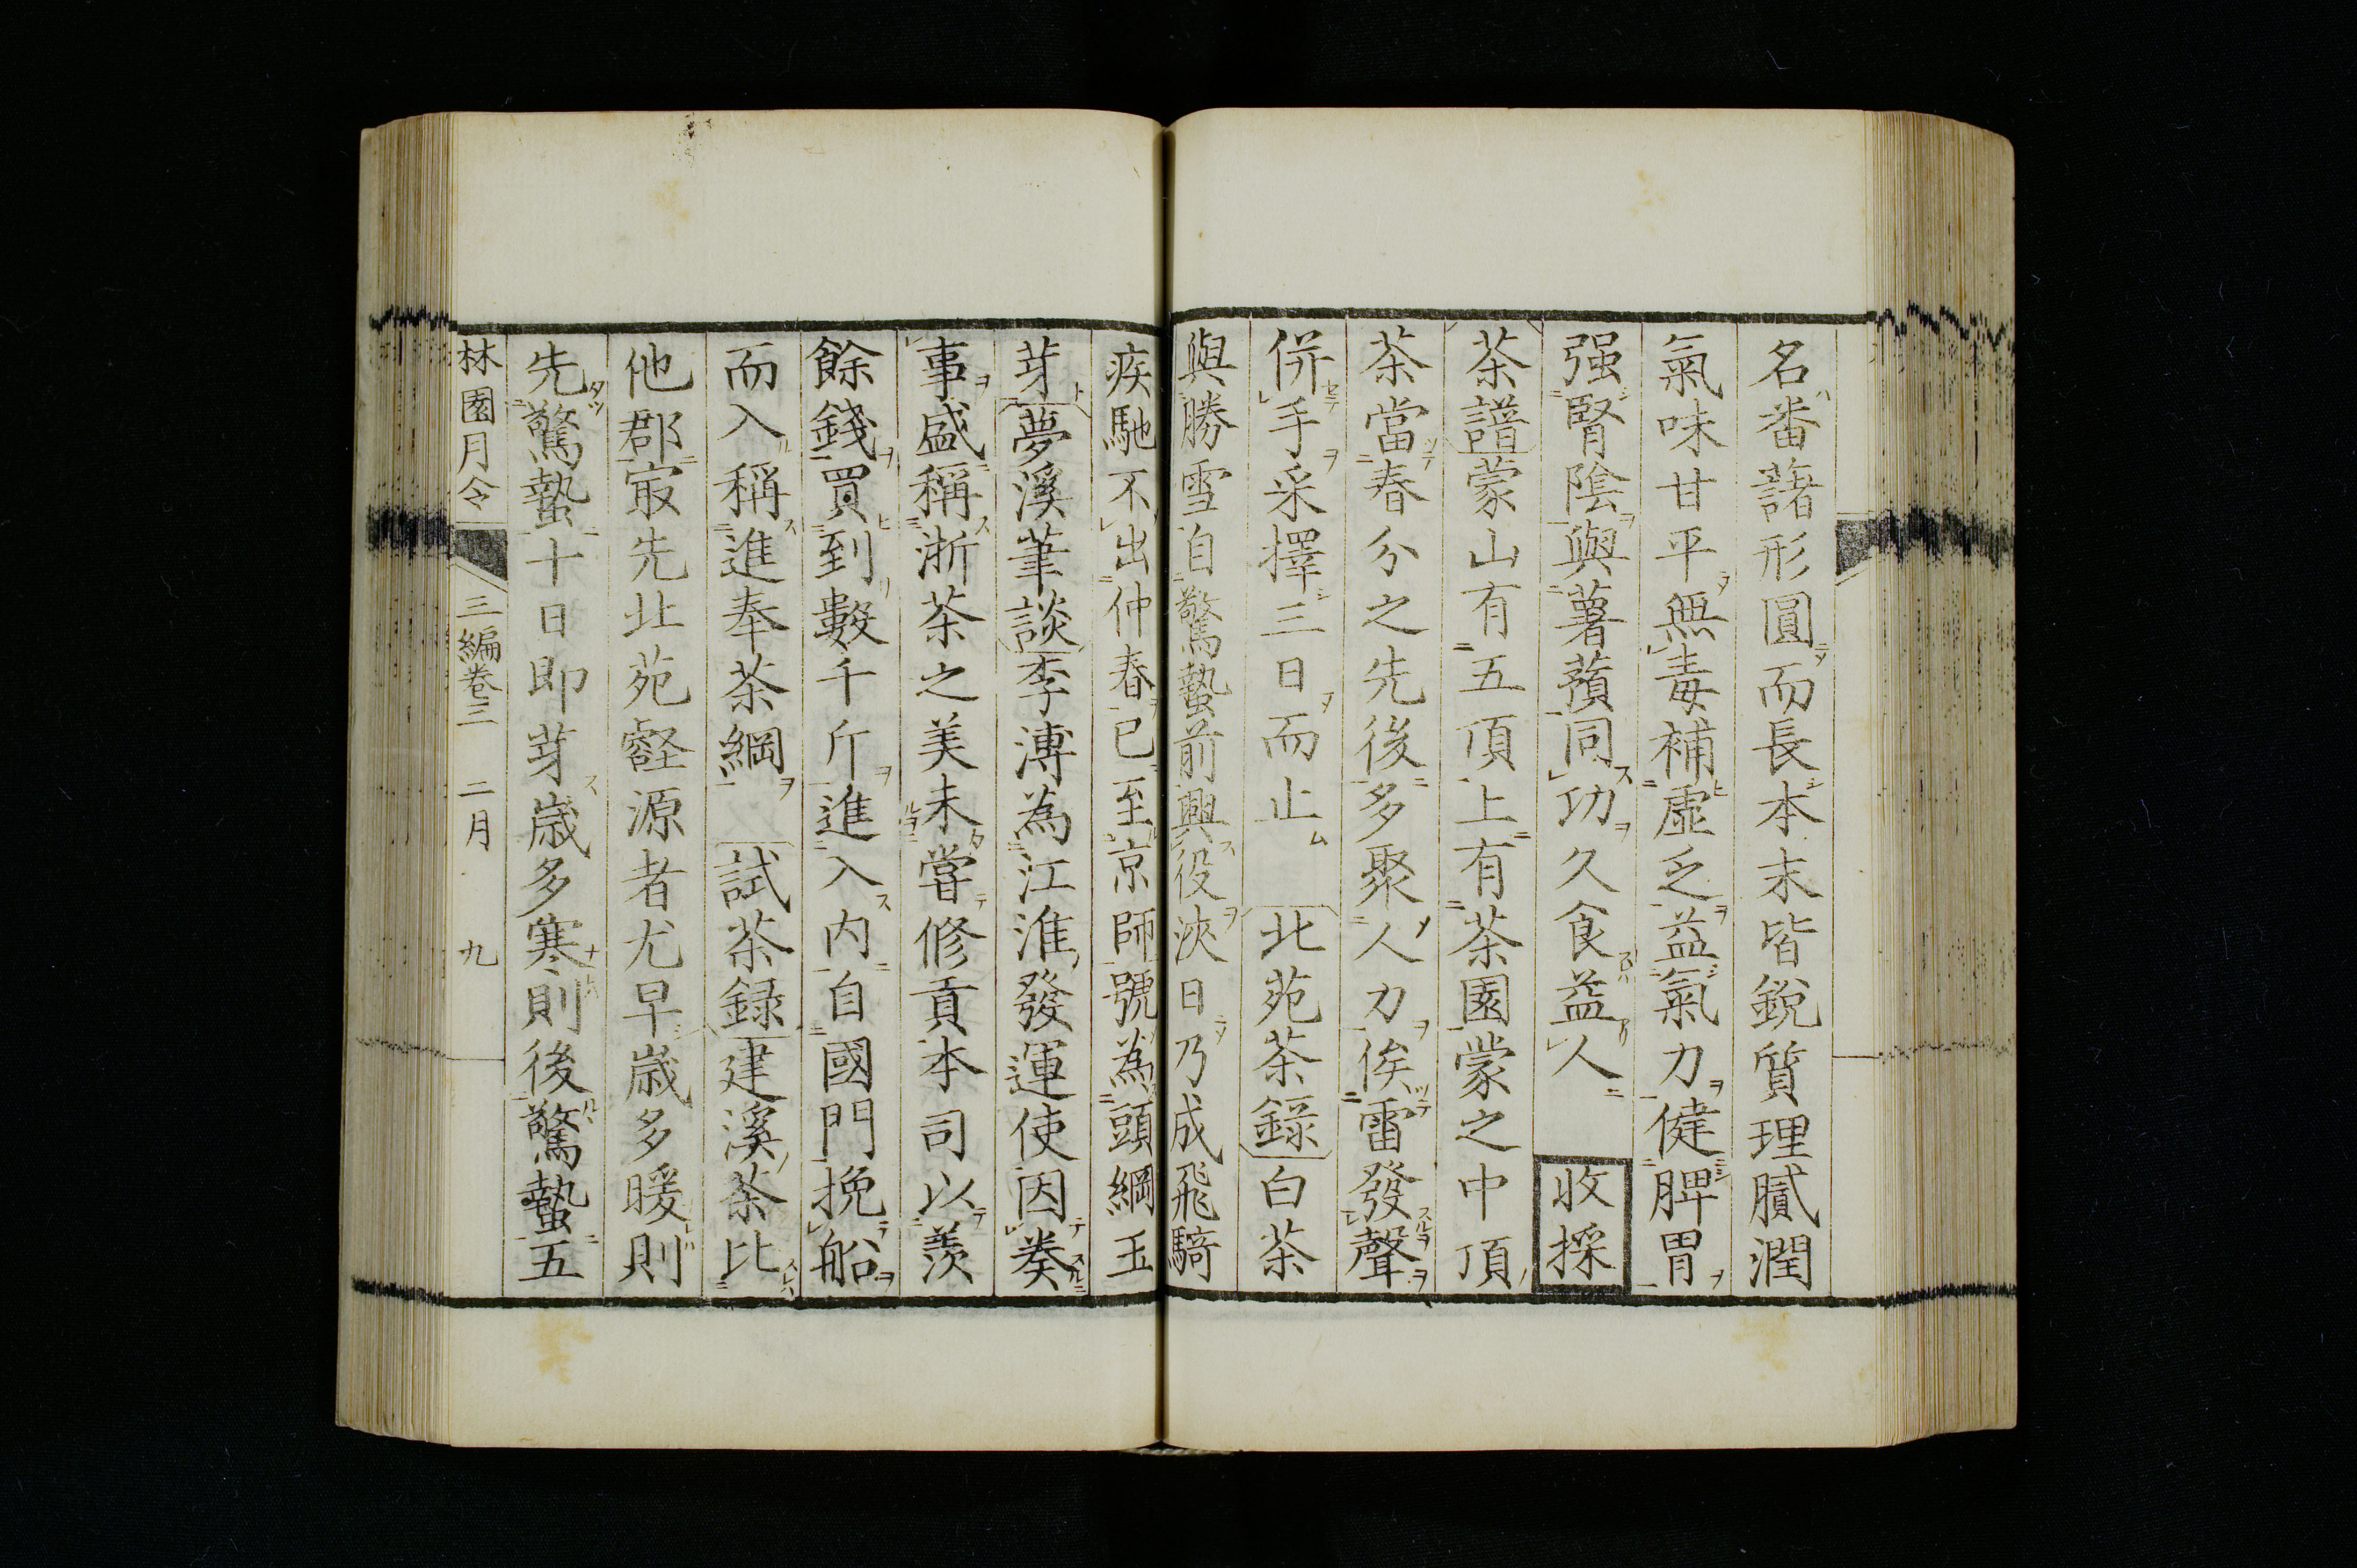 名番藷形圓而長本末皆銳質理膩潤
氣味甘平無毒補虛乏益氣力健脾胃
强腎陰與薯蕷同功久食益人 收採
茶譜蒙山有五頂上有茶園蒙之中頂
茶當春分之先後多聚人力俟雷發聲
併手采擇三日而止 北苑茶錄白茶
與勝雪自驚蟄前興役浹日乃成飛騎
疾馳不出仲春已至京師號為頭綱玉
芽夢溪筆談李溥為江淮發運使因奏
事盛稱浙茶之美未嘗修貢本司以羨
餘錢買到數千斤進入內自國門挽船
而入稱進奉茶綱 試茶録建溪茶比
他郡㝡先北苑壑源者尤早歲多暖則
先驚蟄十日即芽歲多寒則後驚蟄五
林園月令 三編卷三 二月 九